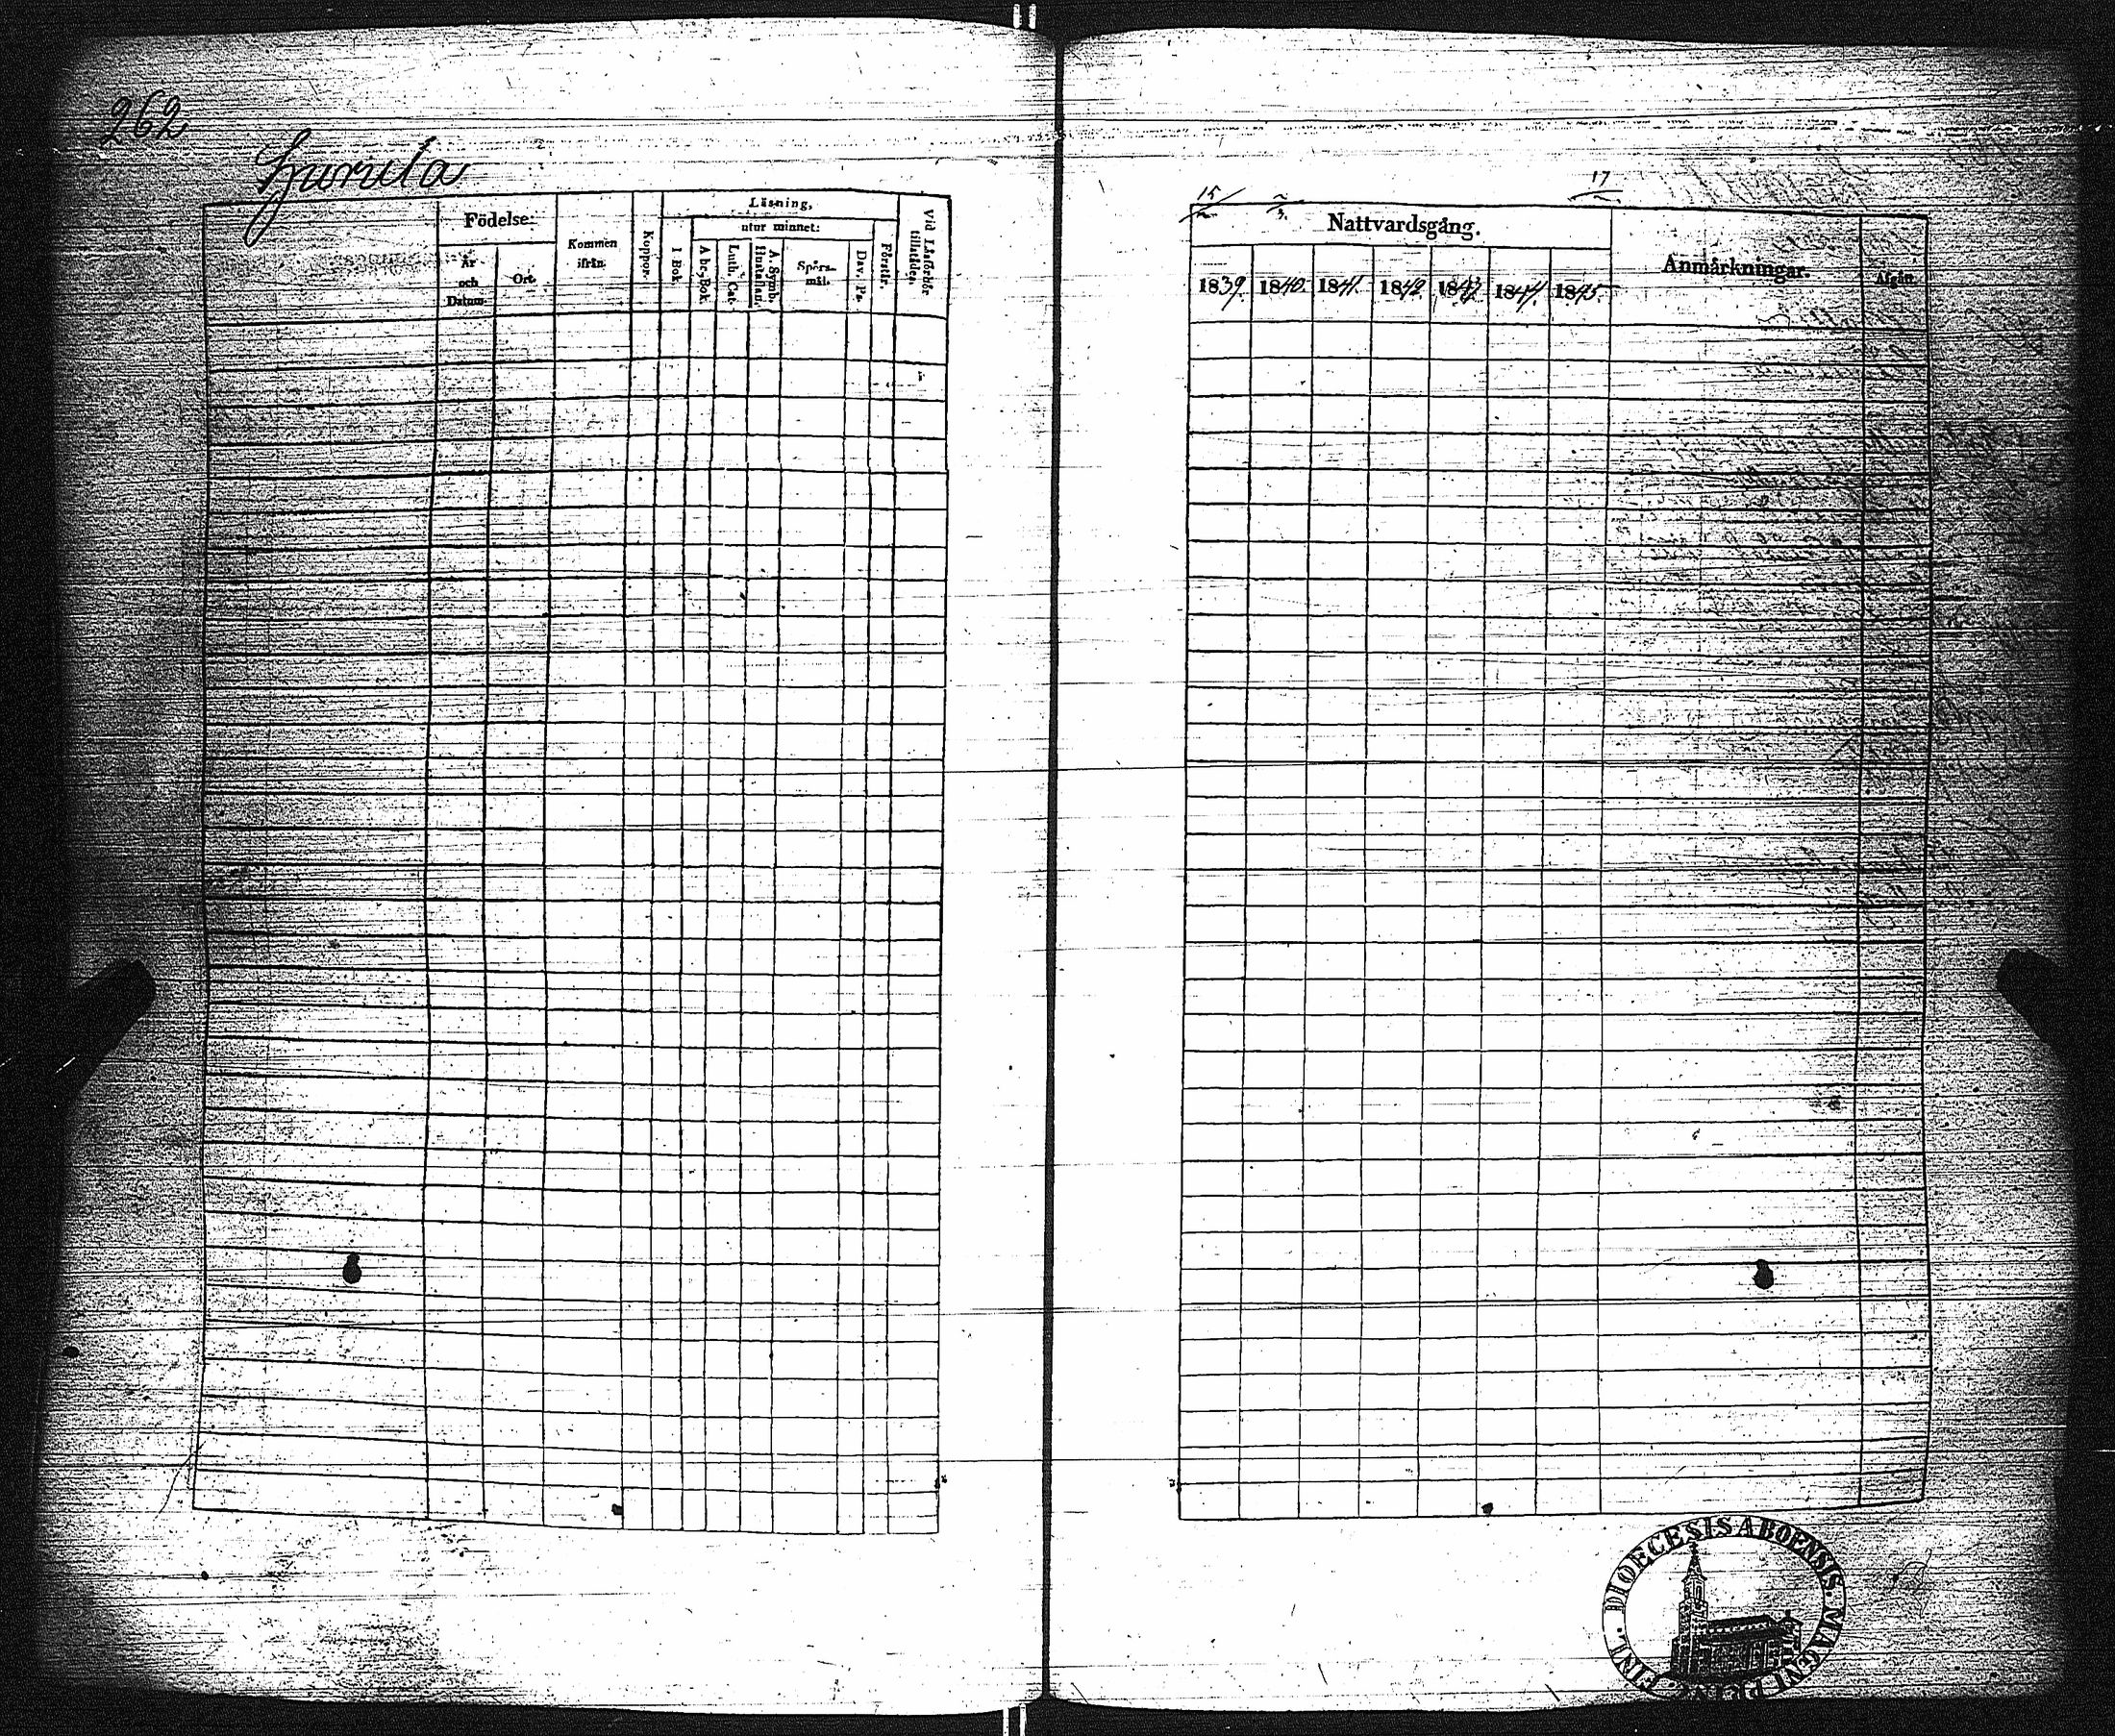 262
Födelse:
År
och
Datum.
Ort.
Kommen
ifrån.
Koppor.
Läsning,
utur minnet:
I Bok.
Abc-Bok.
Luth. Cat.
A. Symb.
Hustaflan.
Spörs-
mål.
Dav. Ps.
Förstår.
Vid Läsförhör
tillstädes.
15
17
Nattvardsgång.
1839. 1840. 1841. 1842. 1843. 1844. 1845.
Anmärkningar.
Afgått.
DIOECESIS ABOENSIS. MAGNI PRINC. FINL.